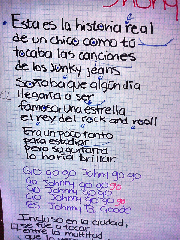 JOHNY
• Esta es la historia real
de un chico como tú
tocaba las canciones
de los Jonky jeans
Soñaba que algún día
llegaría a ser
famosa una estrella
el rey del rock and rooll
Era un poco tonto
para estudiar
pero su guitarra
lo haría brillar.
Go go go Johny go go
Go Johny go go go
Go Johny go go
Go Johny go go
Go Johny B. Goode
Incluso en la ciudad,
se fue a tocar
entre la multitud